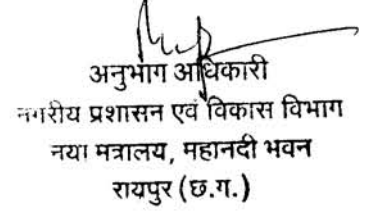 अनुभाग अधिकारी
नगरीय प्रशासन एवं विकास विभाग
नया मत्रालय, महानदी भवन
रायपुर (छ.ग.)